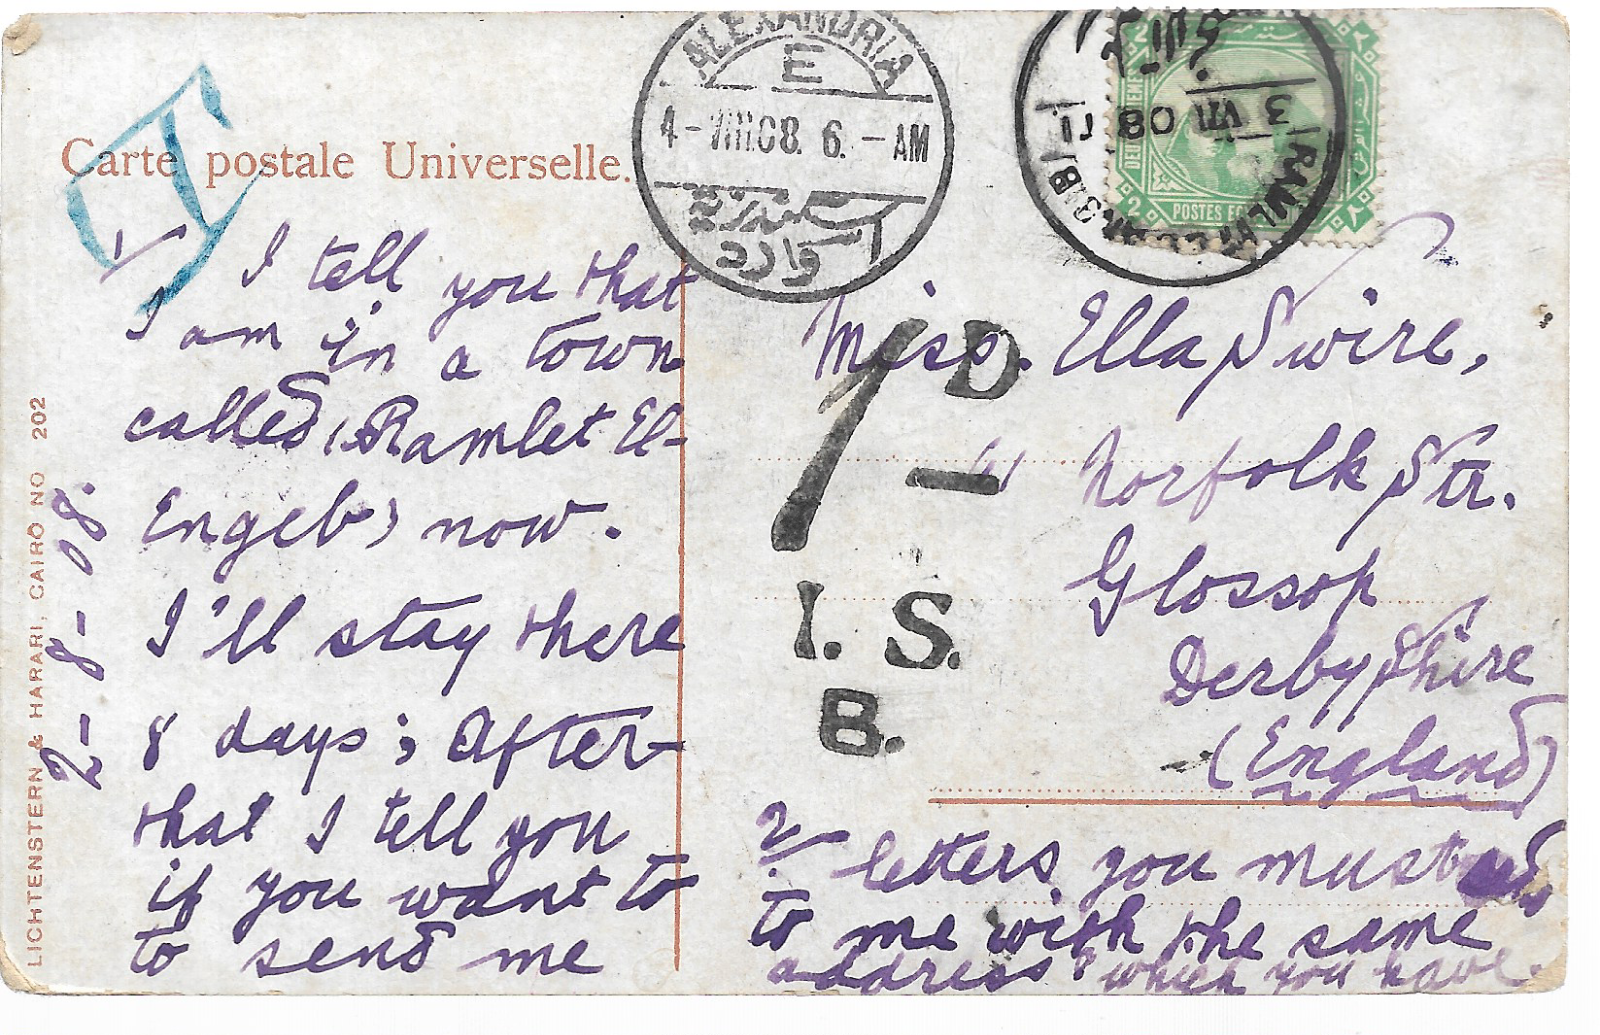 Carte postale Universelle.
ALEXANDRIA
E
4-VIII.08. 6.-AM
2
2
POSTES
3 VIII 08
1/ I tell you that
I am in a town
called "Ramlet El-
Engeb" now.
I'll stay there
8 days; After-
that I tell you
if you want to
to send me
2-8-08.
LICHTENSTERN & HARARI, CAIRO NO 202
Miss. Ella Swire,
Norfolk Str.
Glossop
Derbyshire
(England)
T
1D
I.S.
B.
2/ letters you must
to me with the same
address which you have.